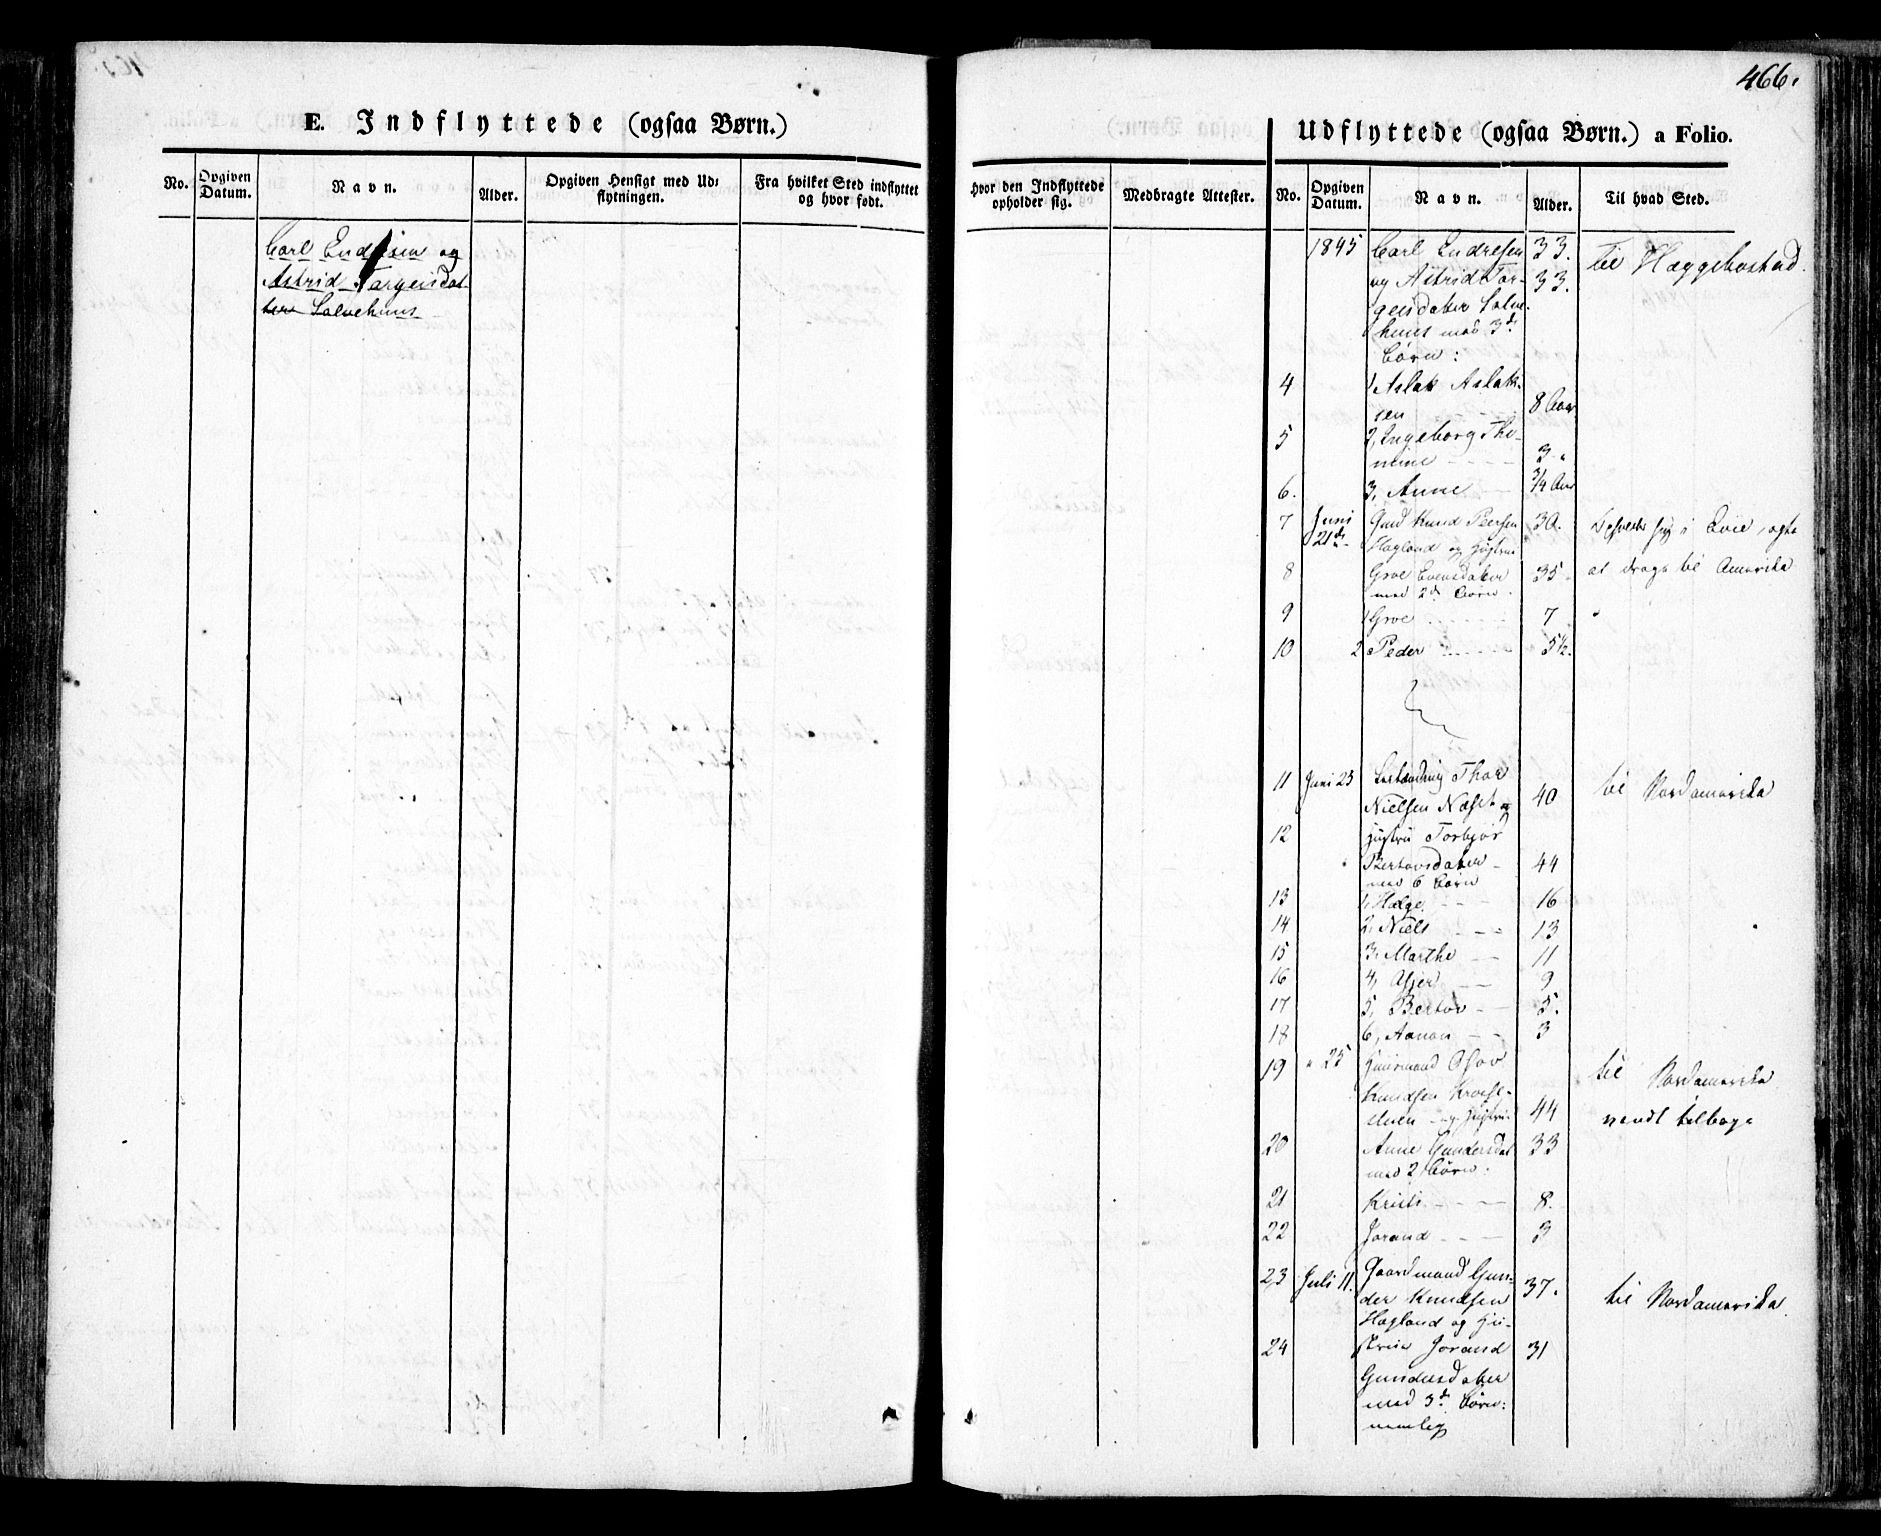 466.
E. Indflyttede (ogsaa Børn.)
No.
Opgiven Datum.
Navn.
Alder.
Opgiven Hensigt med Udflytningen.
Fra hvilket Sted indflyttet og hvor født.
Carl Endresen og
Astrid Targeisdat
ter Salvehuus
Udflyttede (ogsaa Børn.) a Folio.
Hvor den Indflyttede opholder sig.
Medbragte Attester.
No.
Opgiven Datum.
Navn.
Alder.
Til hvad Sted.
1845 Carl Endresen 33. til Hæggebostad.
og Astrid Tar- 33.
geisdatter Salve-
huus med 3de
Børn:
4 1, Aslak Aslak-
sen 8 Aar
5 2, Ingeborg The-
mine 3 "
6. 3, Anne 3/4 Aar
7 Juni 21de Knud Peersen 30. i Evie, agte
Hagland og Hustru
8 Groe Evensdatter 35 at drage til Amerika
med 2de Børn
9 1 Groe 7 "
10 2 Peder 5 1/2.
11 Juni 23 Thor
Nielsen Næset og 40 til Nordamerika
12 Hustru Torbjør
Bertovsdatter 44
med 6 Børn
13 1, Helge 16
14 2, Niels 13
15 3, Marthe 11
16 4, Asjer 9
17 5, Bertov 5.
18 6, Aanon 3
19 " 25 Huusmand Osov til Nordamerika
Knudsen
og Hustru 44 vendt tilbage
20 Anne Gundersdat 33
med 2 Børn:
21 Kristi 8.
22 Jorand 3
23 Juli 11. Gaardmand Gun-
der Knudsen 37. til Nordamerika
Hagland og Hu-
24 strue Jorand 31
Gundersdatter
med 3de Børn:
nemlig